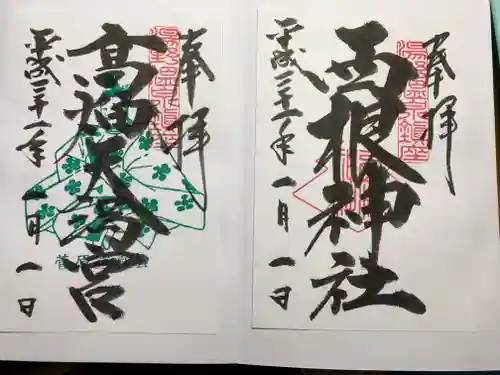 奉拝
西根神社
平成三十一年 一月 一日
奉拝
高畑天満宮
平成三十一年 一月 一日